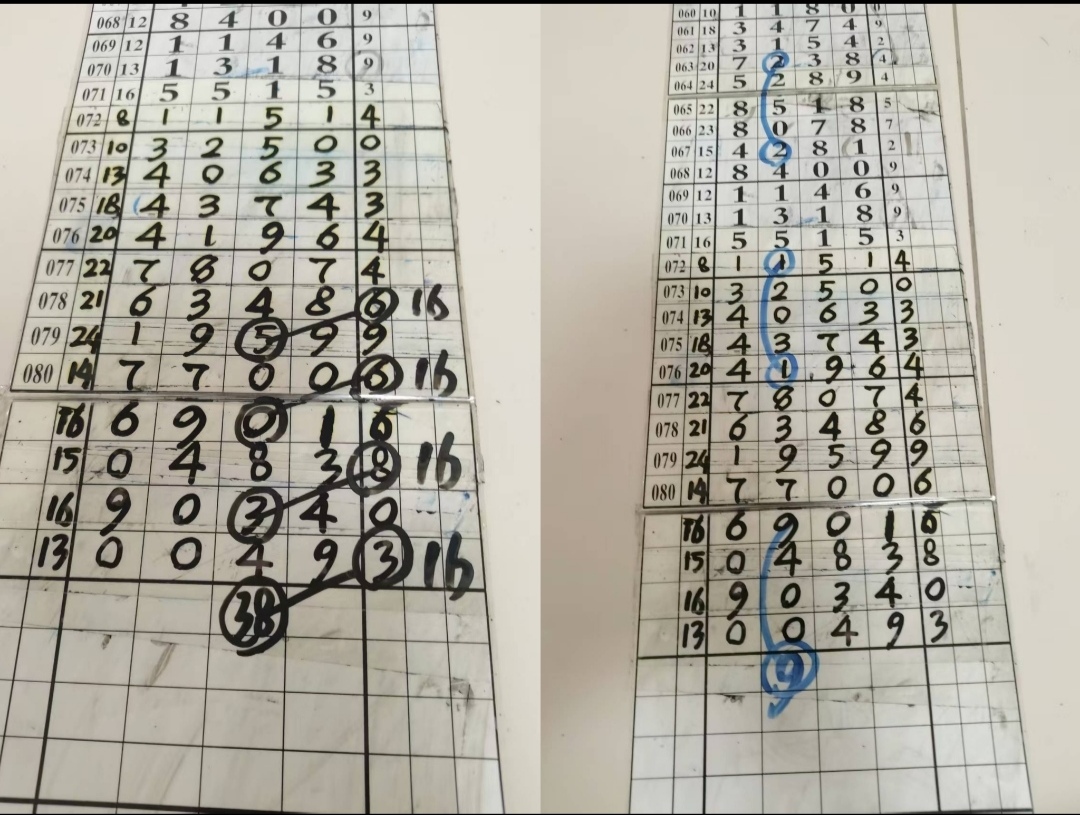 068 12 8 4 0 0 9
069 12 1 1 4 6 9
070 13 1 3 1 8 9
071 16 5 5 1 5 3
072 8 1 1 5 1 4
073 10 3 2 5 0 0
074 13 4 0 6 3 3
075 18 4 3 7 4 3
076 20 4 1 9 6 4
077 22 7 8 0 7 4
078 21 6 3 4 8 6 16
079 24 1 9 5 9 9
080 14 7 7 0 0 6 16
16 6 9 0 1 6
15 0 4 8 3 8 16
16 9 0 3 4 0
13 0 0 4 9 3 16
38
060 10 1 1 8 0 0
061 18 3 4 7 4 9
062 13 3 1 5 4 2
063 20 7 2 3 8 4
064 24 5 2 8 9 4
065 22 8 5 1 8 5
066 23 8 0 7 8 7
067 15 4 2 8 1 2
068 12 8 4 0 0 9
069 12 1 1 4 6 9
070 13 1 3 1 8 9
071 16 5 5 1 5 3
072 8 1 1 5 1 4
073 10 3 2 5 0 0
074 13 4 0 6 3 3
075 18 4 3 7 4 3
076 20 4 1 9 6 4
077 22 7 8 0 7 4
078 21 6 3 4 8 6
079 24 1 9 5 9 9
080 14 7 7 0 0 6
16 6 9 0 1 6
15 0 4 8 3 8
16 9 0 3 4 0
13 0 0 4 9 3
9